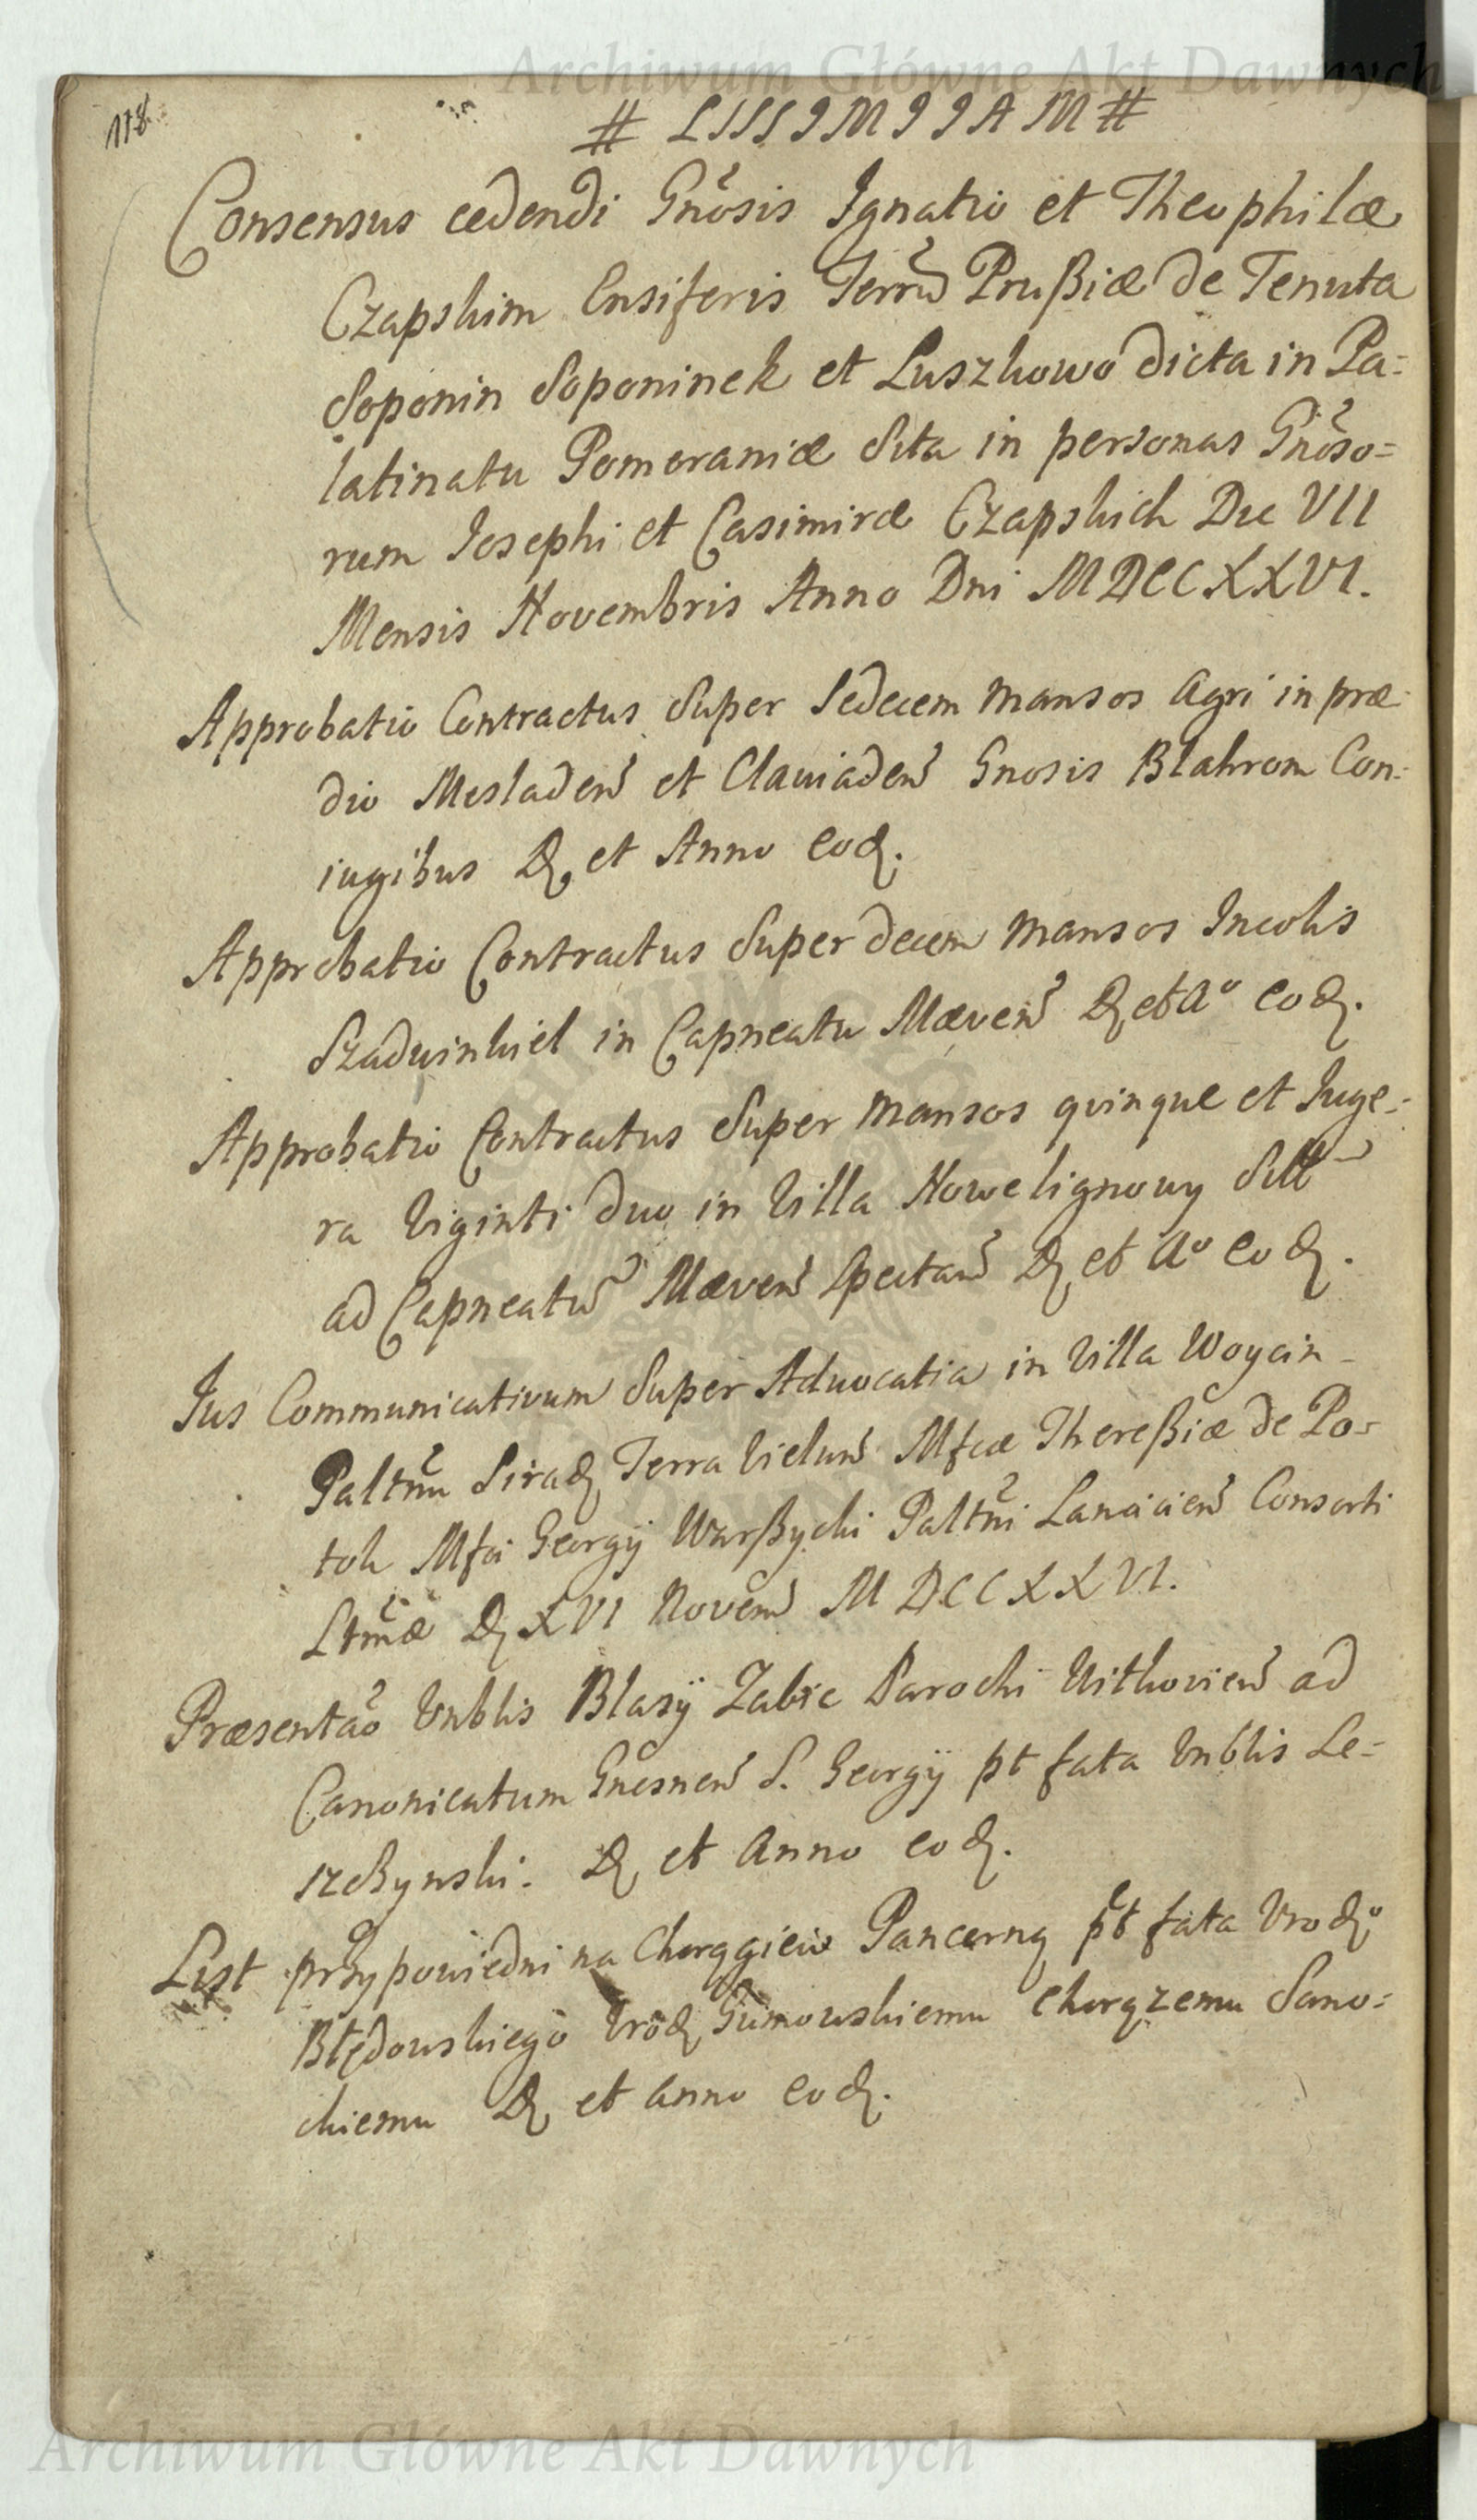 Archiwum Główne Akt Dawnych
118
# LSSSIMIIAM #
Consensus cedendi Gnosis Ignatio et Theophilæ
Czapskim Ensiferis Terrũ Prußiæ de Tenuta
Soponin Soponinek et Luszkowo dicta in Pa=
latinatu Pomeraniæ Sita in personas Gnõso=
rum Iosephi et Casimiræ Czapskich Die VII
Mensis Novembris Anno Dni MDCCXXVI.
Approbatio Contractus Super Sedecem mansos Agri in præ-
dio Mesladen et Clauiaden Gnosis Blahrom Con-
iugibus D. et Anno eod.
Approbatio Contractus Super decem mansos Incolis
Szadwinkiel in Capneatu Mæven D. et Aº eod.
Approbatio Contractus Super mansos qvinque et Iuge-
ra Viginti duo in Villa Nowelignowy Sitt
ad Capneatũ Mæven Spectan D. et Aº eod.
Ius Communicativum Super Advocatia in Villa Woycin
Paltnũ Sirad. Terra Vielun Mfcæ Thereßiæ de Po=
tok Mfci Georgij Warßycki Paltni Lancicien Consorti
Ltmæ D. XVI Novem MDCCXXVI.
Præsentaõ Vnblis Blasij Zabic Parochi Vitkovien ad
Canonicatum Gnesnen S. Georgij pt fata Vnblis Le=
szczynski. D. et Anno eod.
List przypowiedni na Chorągiew Pancerną pt fata Vrodº
Błędowskiego Vrod. Gumowskiemu Chorązemu Sano=
ckiemu D. et Anno eod.
Archiwum Główne Akt Dawnych